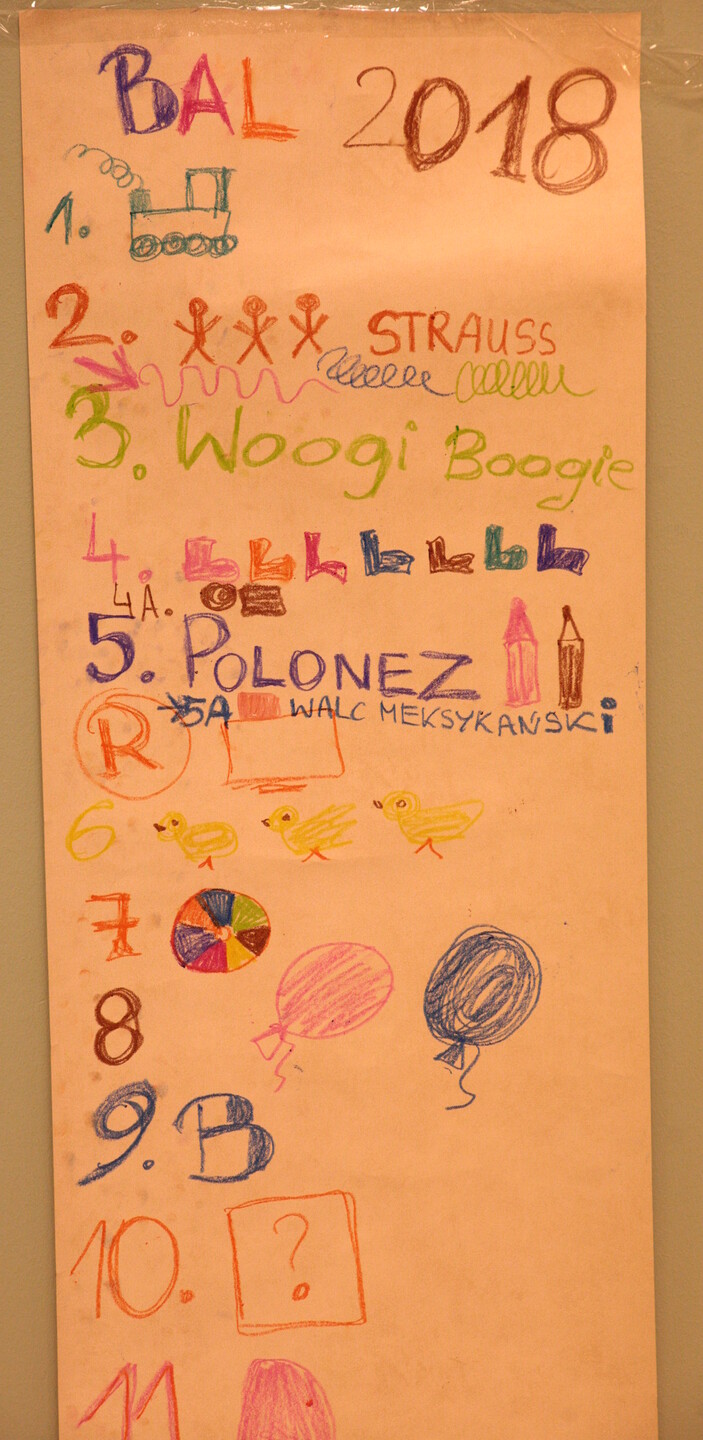 BAL 2018
1.
2. STRAUSS
3. Woogi Boogie
4.
4A.
5. POLONEZ
5A WALC MEKSYKAŃSKi
R
6
7
8
9. B
10. ?
11